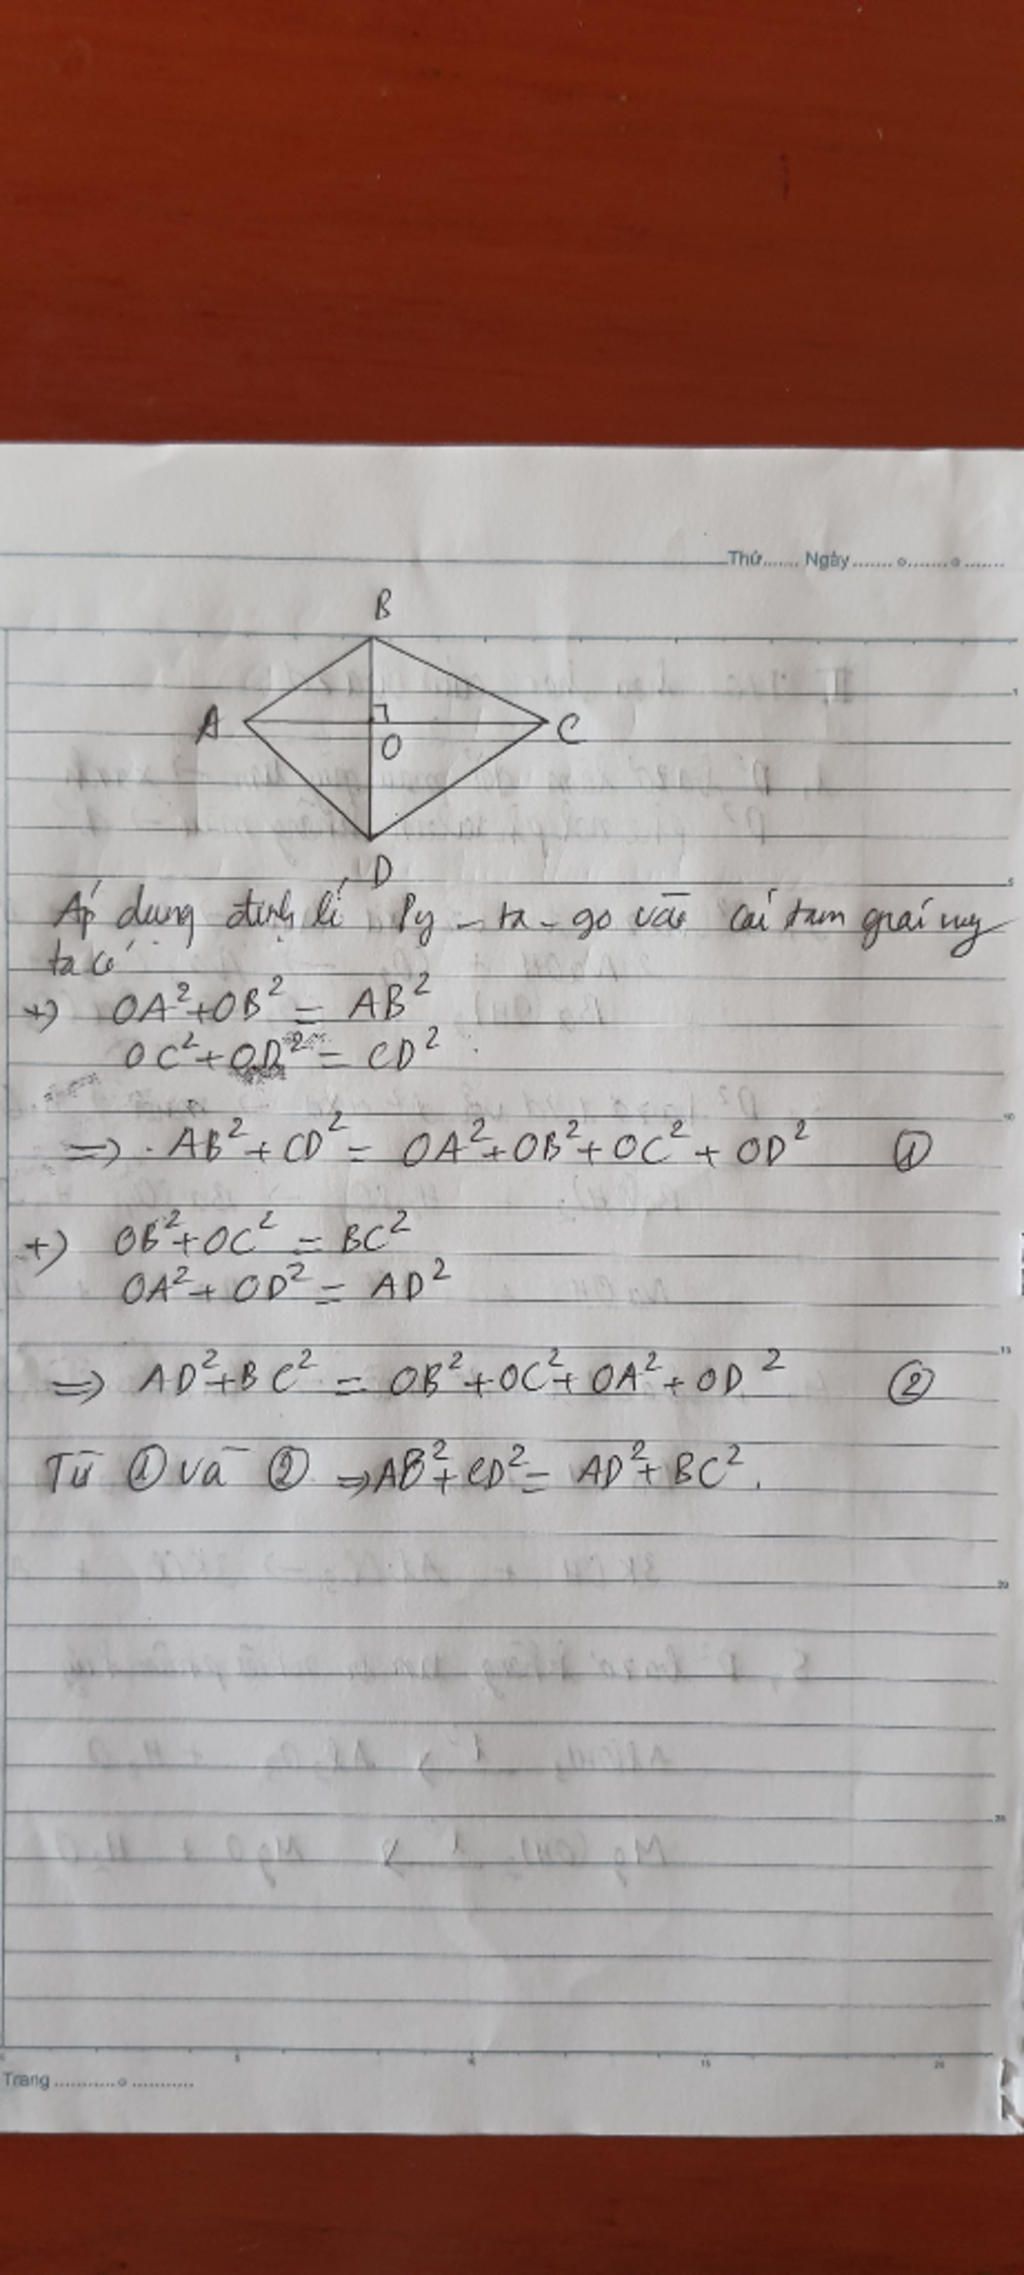 Thứ....... Ngày
B
A
O
C
D
Áp dụng định lí Py-ta-go vào các tam giác
ta có
+) OA²+OB² = AB²
OC²+OD² = CD²
=> AB²+CD² = OA²+OB²+OC²+OD² ①
+) OB²+OC² = BC²
OA²+OD² = AD²
=> AD²+BC² = OB²+OC²+OA²+OD² ②
Từ ① và ② => AB²+CD² = AD²+BC².
Trang